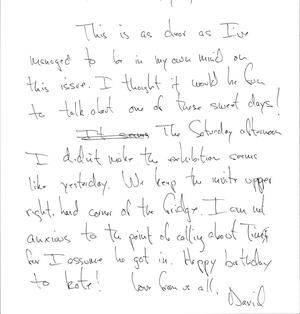 This is as dear as I've
managed to be in my own mind on
this issue. I thought it would be fun
to talk about one of those sweet days!
It seems The Saturday afternoon
I didn't make the exhibition seems
like yesterday. We keep the invite upper
right hand corner of the fridge. I am not
anxious to the point of calling about
for I assume he got in. Happy birthday
to Kate! Love from us all,
David